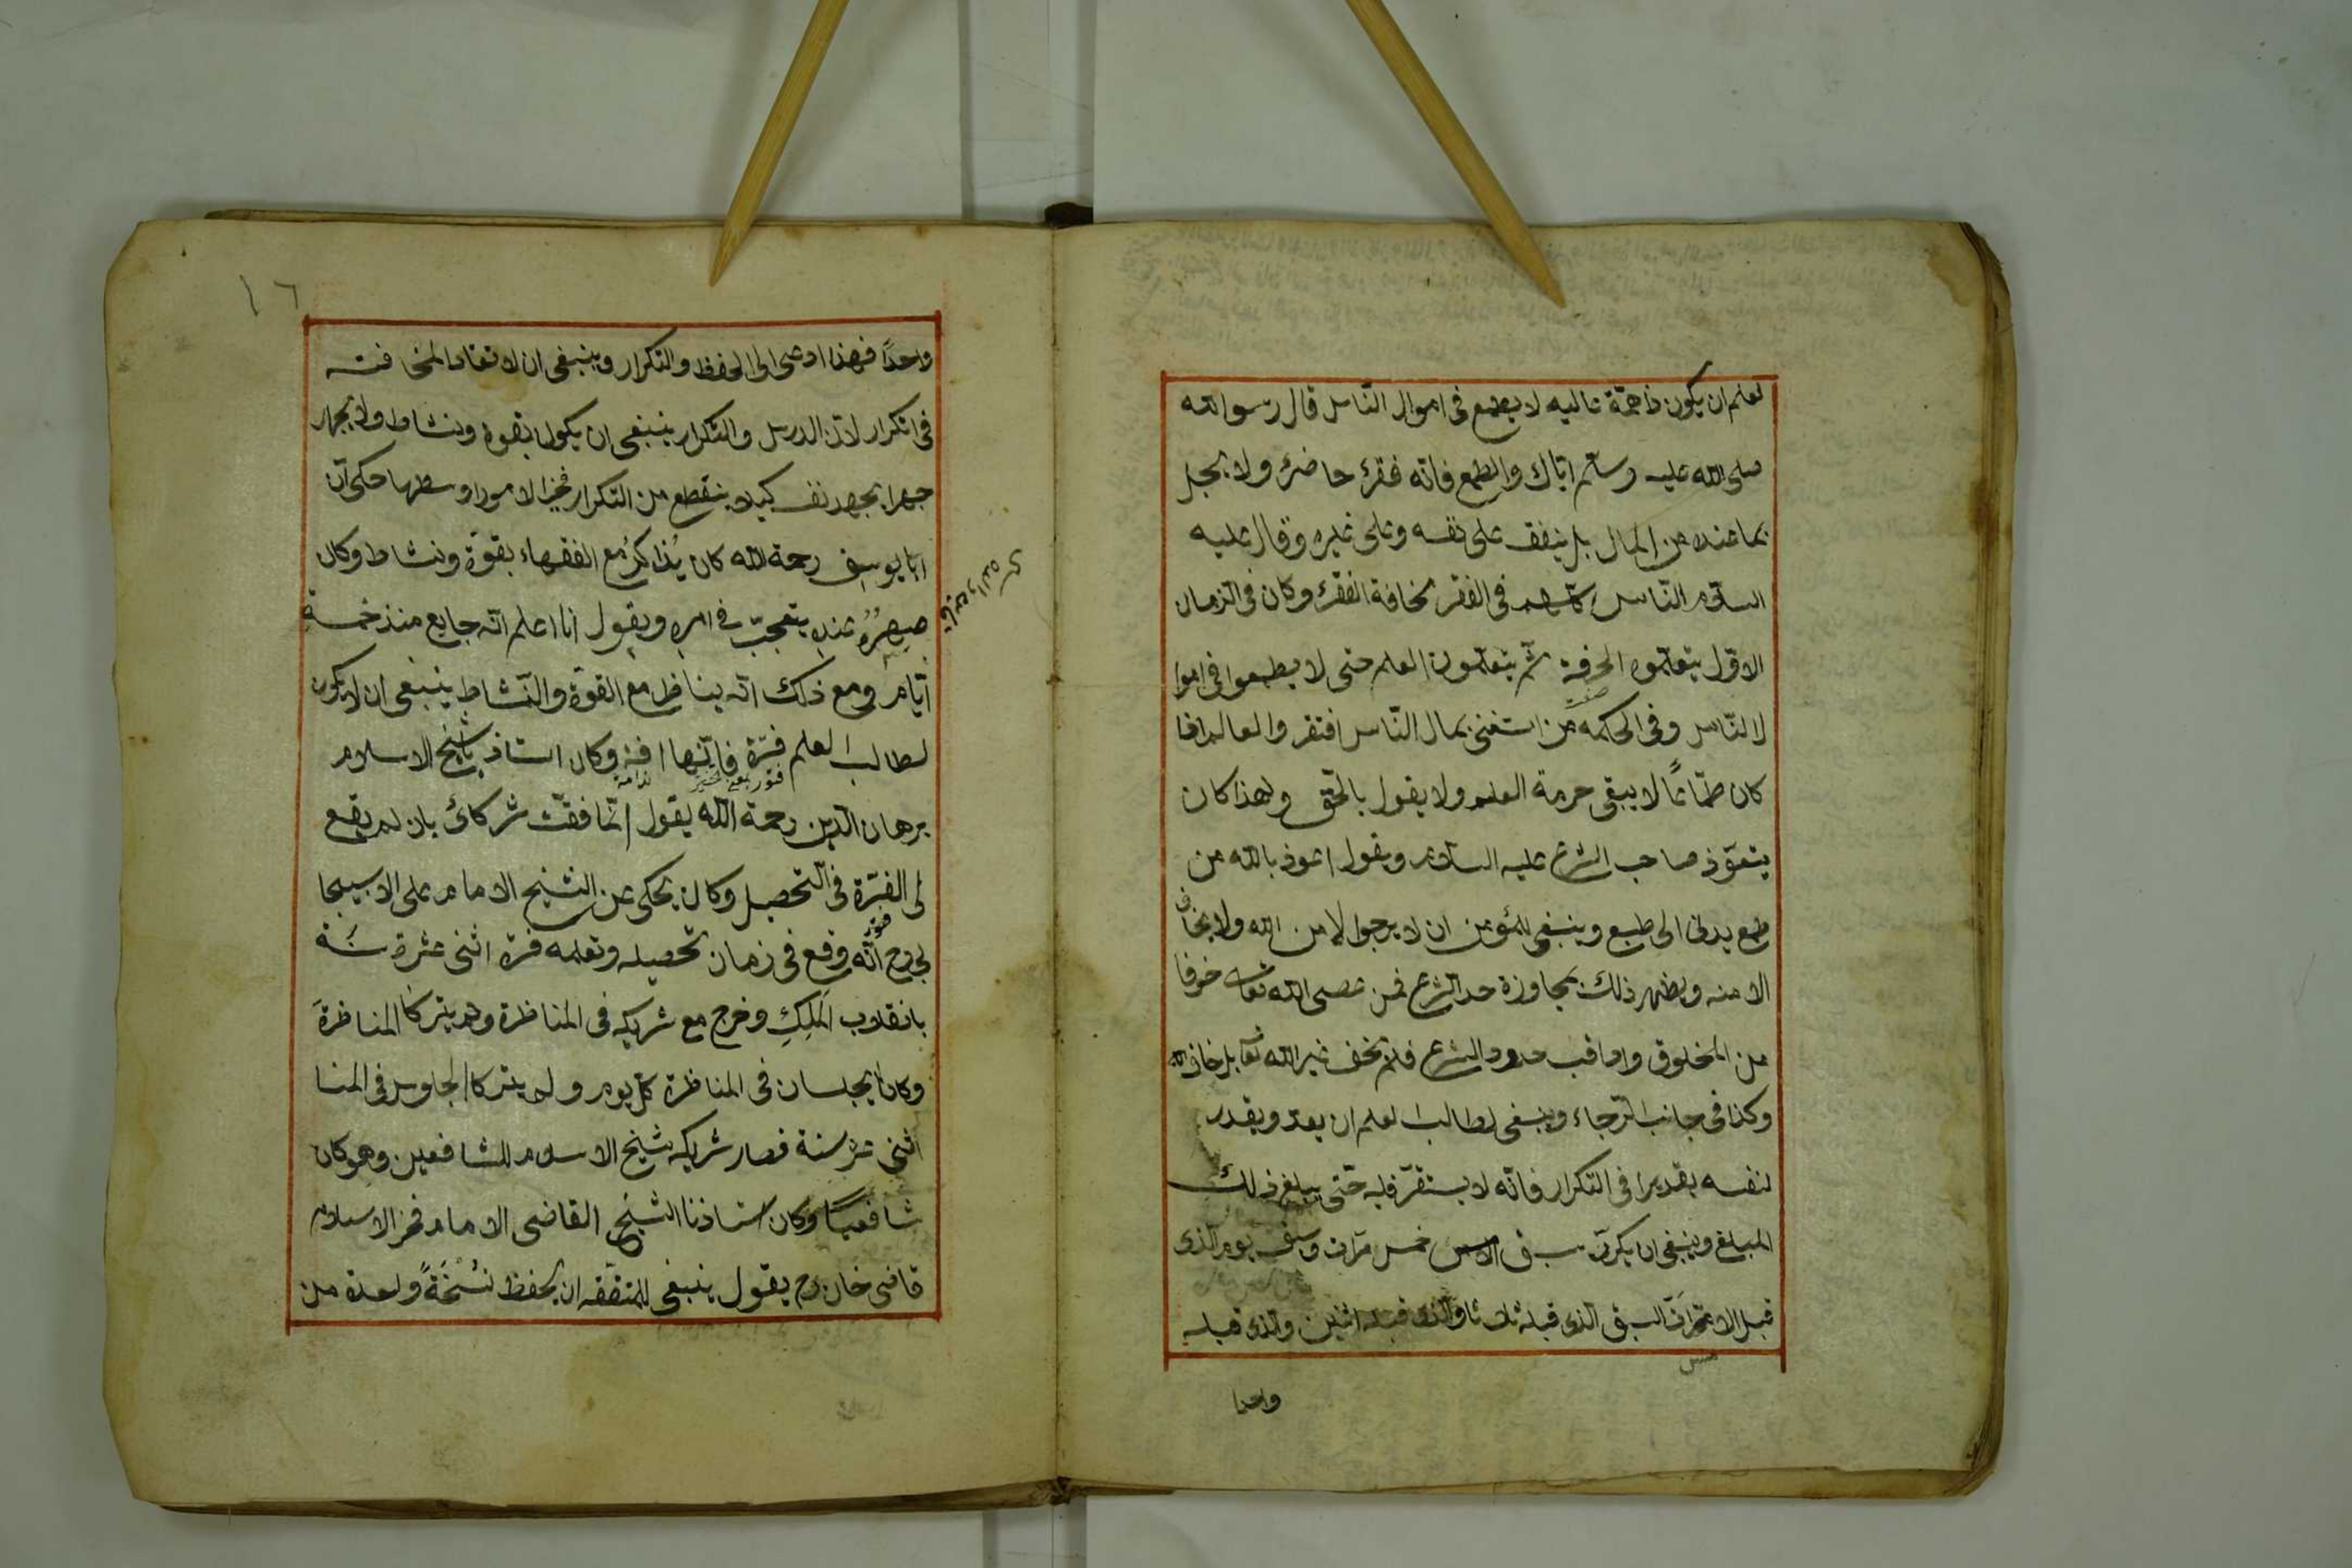 لعلم ان يكون ذا همّة عاليه لا يطمع فى اموال النّاس قال رسو الله
صلى الله عليه وسلم ايّاك والطمع فانّه فقرٌ حاضرٌ ولا بجل
بما عنده من المال بل ينفق على نفسه وعلى غيره وقال عليه
السلام النّاس كلّهم فى الفقر مخافة الفقر وكان فى الزمان
الاوّل يتعلّمون الحرفة ثمّ يتعلّمون العلم حتى لا يطمعوا فى اموا
لا لنّاس وفى الحكمه من استغنى بمال النّاس افتقر والعالم اذا
كان طمّاعًا لا يبقى حرمة العلم ولا يقول بالحق ولهذا كان
يتعوّذ صاحب الشرع عليه السلام ويقول اعوذ بالله من
طمع يدنى الى طبع وينبغى للمؤمن ان لا يرجوا الا من الله ولا يخاف
الا منه ويظهر ذلك بمجاوزة حد الشرع فمن عصى الله تعالى خوفا
من المخلوق واذا قب حدود الشرع فلم يخف غير الله تعا بل خاف الله
وكذا فى جانب الرّجاء وينبغى لطالب لعلم ان يعد ويقدر
لنفسه تقديرا فى التكرار فانّه لا يستقرّ قلبه حتّى يبلغ ذلك
المبلغ وينبغى ان يكرّر سبق الامس خمس مرّات وسبق يوم الّذى
قبل الامس السبق الّذى قبله ثلاثا والّذى قبله اثنين والّذى قبله
واحدا
١٦
واحدًا فهذا ادعى الى الحفظ والتكرار وينبغى ان لا تعتاد المخافته
فى اتكرار لانّ الدرس والتّكرار ينبغى ان يكون بقوة ونشاط ولا يجهر
جهرا يجهد نفسه كيلا ينقطع من التكرار فخير الامور اوسطها حكى انّ
ابا يوسف رحمة الله كان يُذاكرُ مع الفقهاء بقوّة ونشاط وكان
صهرُهُ عنده يتعجّب فى امره ويقول انا اعلم انّه جايع منذ خمسة
ايّام ومع ذلك انّه يناظر مع القوّة والنّشاط ينبغى ان لا يكون
لطالب العلم فترة فانّها افة وكان استاذ نا شيخ الاسلام
برهان الدين رحمة الله يقول انّما فقت شركائى بان لم يقع
لى الفترة فى التّحصيل وكان يحكى عن الشيخ الامام على الاسبيجا
بى رح انّه وقع فى زمان تحصيله وتعلمه فترة اثنى عشرة سنة
بانقلاب المَلِكِ وخرج مع شريكه فى المناظرة ولم يتركا المناظرة
وكانا يجلسان فى المناظرة كلّ يوم ولم يتركا الجلوس فى المنا
اثنى عشر سنة فصار شريكه شيخ الاسلام للشافعين وهو كان
شافعيًا وكان استاذنا الشيخ القاضى الامام فخر الاسلام
قاضى خان رح يقول ينبغى للمتفّقه ان يحفظ نُسْخَةً واحدة من